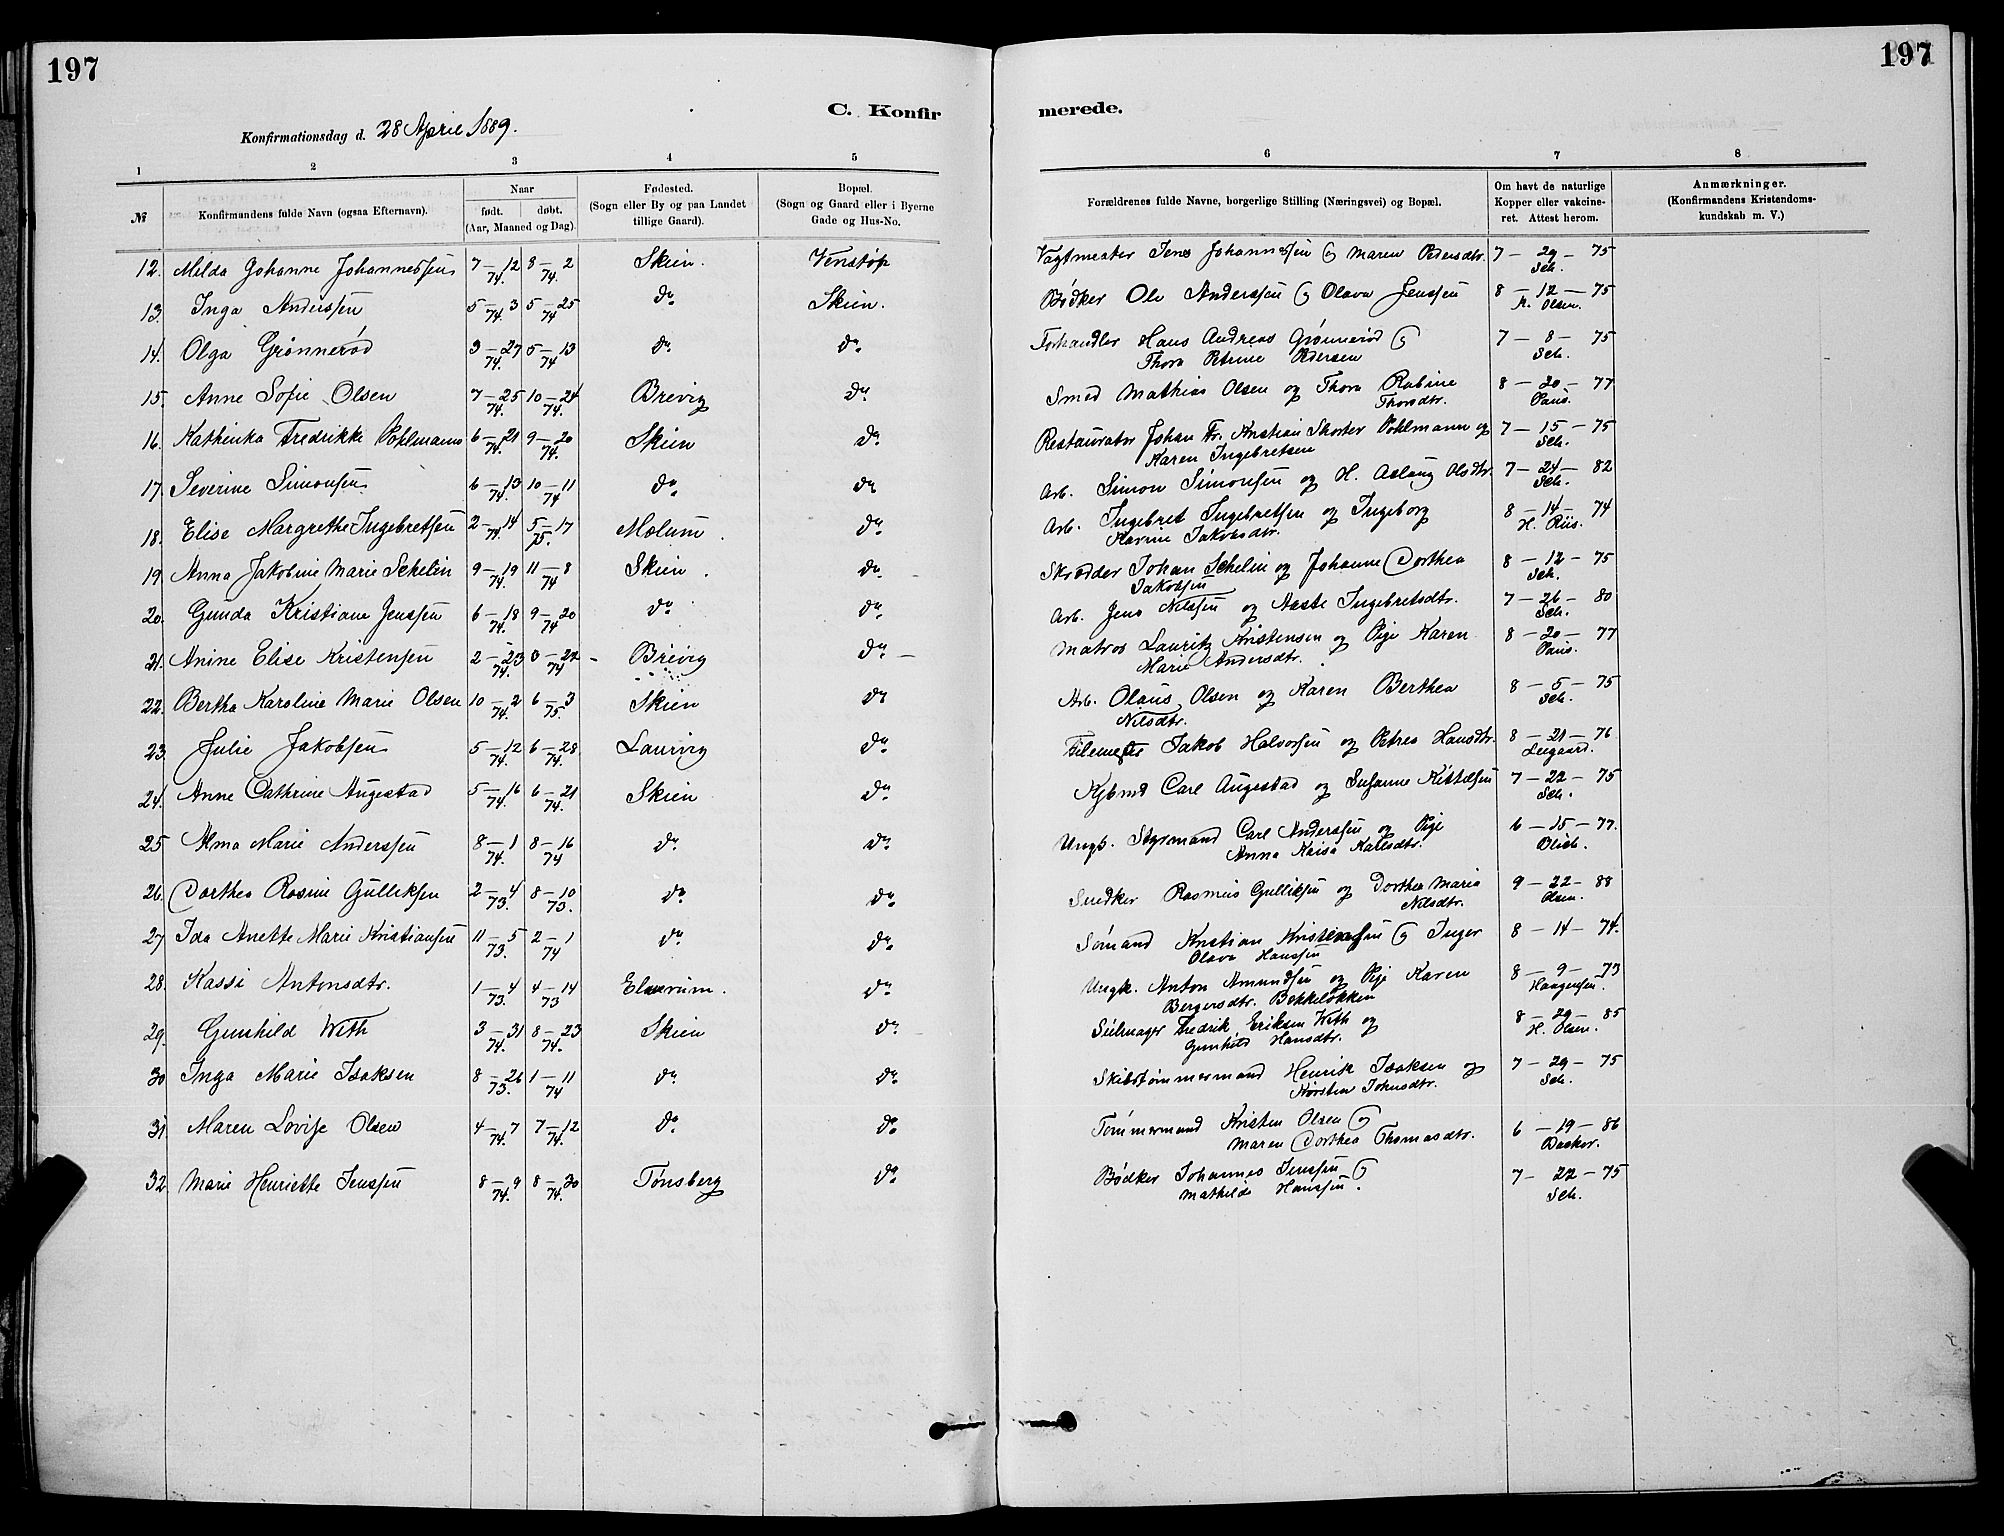 197
197
C. Konfir
merede.
Konfirmationsdag d. 28 April 1889.
1 2 3 4 5 6 7 8
№ Konfirmandens fulde Navn (ogsaa Efternavn). Naar født. døbt. (Aar, Maaned og Dag). Fødested. (Sogn eller By og paa Landet tillige Gaard). Bopæl. (Sogn og Gaard eller i Byerne Gade og Hus-No. Forældrenes fulde Navne, borgerlige Stilling (Næringsvei) og Bopæl. Om havt de naturlige Kopper eller vakcineret. Attest herom. Anmærkninger. (Konfirmandens Kristendomskundskab m. V.)
12. Milda Johanne Johannessen 7–12 74. 8–2 74. Skien. Venstøp Vagtmester Jens Johannessen og Maren Pedersdtr. 7–29–75 Sch.
13. Inga Anderssen 5–3 74. 5–25 74 do Skien. Bødker Ole Anderssen og Olava Jenssen 8–12–75 Olsen.
14. Olga Grønnerød 3–27 74. 5–13 74 do do Forhandler Hans Andreas Grønnerød og
Thora Petrine Pedersen 7–8–75 Sch.
15. Anne Sofie Olsen 7–25 74. 10–24 74. Brevig do Smed Mathias Olsen og Thora Rabine
Thorsdtr. 8–20–77 Paus.
16. Kathinka Fredrikke Pohlmann 6–21 74. 9–20 74. Skien do Restauratør Johan Fr. Kristian Pohlmann og
Karen Ingebretsen 7–15–75 Sch.
17. Severine Simonsen 6–13 74. 10–11 74 do do Arb. Simon Simonsen og H. Aslaug Olsdtr. 7–24–82 Sch.
18. Elise Margrethe Ingebretsen 2–14 74. 5–17 75. Mælum. do Arb. Ingebret Ingebretsen og Ingeborg
Karine Jakobsdtr. 8–14–74 H. Riis.
19 Anna Jakobine Marie Schelin 9–19 74. 11–8 74 Skien. do Skrædder Johan Schelin og Johanne Dorthea
Jakobsen 8–12–75 Sch.
20. Gunda Kristiane Jenssen 6–18 74. 9–20 74 do do Arb. Jens Nilssen og Aaste Ingebretsdtr. 7–26–80 Sch.
21. Anine Elise Kristensen 2–23 74. 74 Brevig do Matros Lauritz Kristensen og Pige Karen
Marie Andersdtr. 8–20–77 Paus.
22. Bertha Karoline Marie Olsen 10–2 74. 6–3 75. Skien do Arb. Olaus Olsen og Karen Berthea
Nilsdtr. 8–5–75 Sch.
23. Julie Jakobsen 5–12 74. 6–28 74. Laurvig do Jakob Halvorsen og Petrea Hansdtr. 8–21–76
24. Anne Cathrine Augestad 5–16 74. 6–21 74. Skien do Kjbmd Carl Augestad og Susanne Kittelsen 7–22–75 Sch.
25 Alma Marie Anderssen 8–1 74. 8–16 74 do do Ungk. Styrmand Carl Anderssen og Pige
Anna Kaisa Karlsdtr. 6–15–77. Blich.
26. Dorthea Rosine Gulliksen 2–4 73. 8–10 73. do do Snedker Rasmus Gulliksen og Dorthea Maria
Nilsdtr. 9–22–88 Olsen.
27 Ida Anette Marie Kristiansen 11–5 73. 2–1 74 do do Sømand Kristian Kristensen og Inger
Olava Hanssen 8–14–74.
28. Kassi Antonsdtr. 1–4 73. 4–14 73 Elverum. do Ungk. Anton Amundsen og Pige Karen
Bergersdtr. Bekkeløkken 8–9–73 Haagensen.
29. Gunhild With 3–31 74. 8–23 74. Skien do Seilmager Fredrik Eriksen With og
Gunhild Hansdtr. 8–29–85 H. Olsen.
30 Inga Marie Isaksen 8–26 73. 1–11 74 do do Skibstømmermand Henrik Isaksen og
Kirsten Johnsdtr. 7–29–75 Sch.
31 Maren Lovise Olsen 4–7 74. 7–12 74. do do Tømmermand Kristen Olsen og
Maren Dorthea Thomasdtr. 6–19–86
32 Marie Henriette Jenssen 8–9 74. 8–30 74. Tønsberg do Bødker Johannes Jenssen og
Mathilde Hanssen. 7–22–75 Sch.